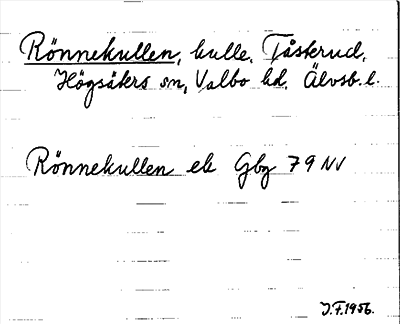 Rönnekullen, kulle. Tåskerud,
Högsäters sn, Valbo hd. Älvsb. l.
Rönnekullen ek Gbg 79 NV
J.F. 1956.